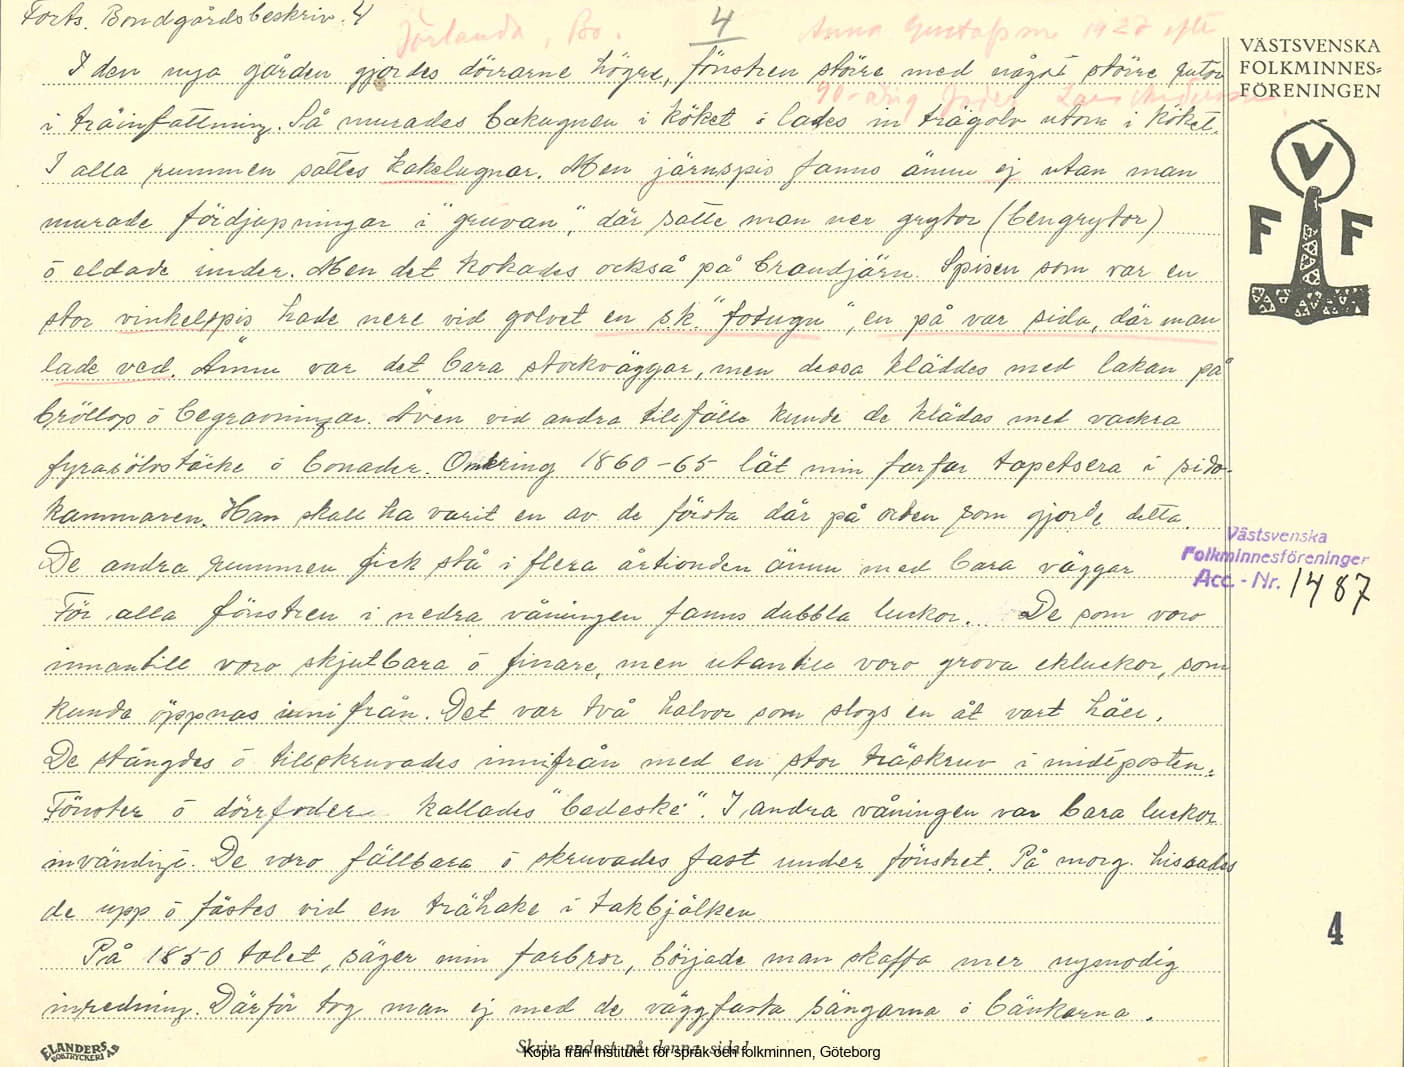 Forts. Bondgårdsbeskriv. 4
Jörlanda, Bo. 4 Anna Gustafsson 1927 efter
90-årig
VÄSTSVENSKA
FOLKMINNES=
FÖRENINGEN
V
F F
I den nya gården gjordes dörrarne högre, fönstren större med något större rutor
i träinfattning. Så murades bakugnen i köket i lades in trägolv utom i köket.
I alla rummen sattes kakelugnar. Men järnspis fanns ännu ej utan man
murade fördjupningar i "gruvan", där satte man ner grytor (bengrytor)
ö eldade under. Men det kokades också på brandjärn. Spisen som var en
stor vinkelspis hade nere vid golvet en s.k. "fotugn", en på var sida, där man
lade ved. Ännu var det bara stockväggar, men dessa kläddes med lakan på
bröllop ö begravningar. Även vid andra tillfälle kunde de klädas med vackra
fyrasölvstäcke ö bonader. Omkring 1860-65 lät min farfar tapetsera i sido-
kammaren. Han skall ha varit en av de första där på orten som gjorde detta.
De andra rummen fick stå i flera årtionden ännu med bara väggar
För alla fönstren i nedra våningen fanns dubbla luckor. De som voro
innantill voro skjutbara ö finare, men utantill voro grova ekluckor, som
kunda öppnas inni från. Det var två halvor som slogs en åt vart håll.
De stängdes ö tillskruvades innifrån med en stor träskruv i midtposten.
Fönster ö dörrfoder kallades "bedeske". I andra våningen var bara luckor
invändigt. De voro fällbara ö skruvades fast under fönstret. På morg. hissades
de upp ö fästes vid en trähake i takbjälken
På 1850 talet, säger min farbror, började man skaffa mer nymodig
inredning. Därför tog man ej med de väggfasta sängarna ö bänkarna.
Västsvenska
Folkminnesföreninger
Acc.-Nr. 1487
4
ELANDERS
BOKTRYCKERI AB
Skriv endast på denna sida!
Kopia från Institutet för språk och folkminnen, Göteborg